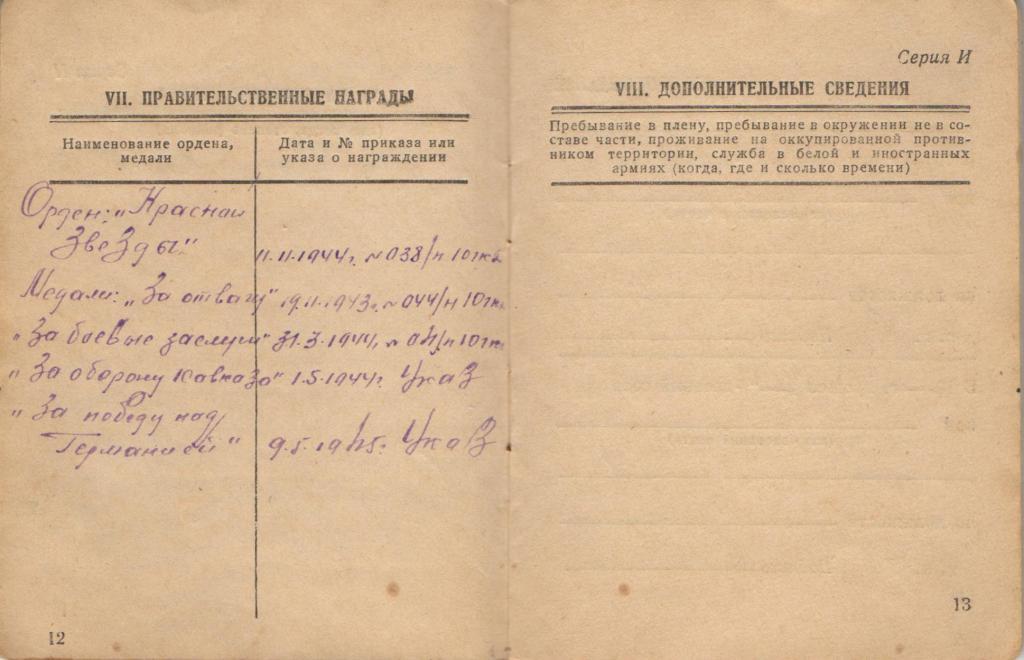 VII. ПРАВИТЕЛЬСТВЕННЫЕ НАГРАДЫ
Наименование ордена,
медали
Дата и № приказа или
указа о награждении
Орден: „Красной
Звезды"
11.11.1944г. №038/н 10гкк
Медали: „За отвагу" 19.11.1943г. №044/н 10гк
„За боевые заслуги" 31.3.1944г. № 04/н 10гк
„За оборону Кавказа" 1.5.1944г. Указ
„За победу над
Германией" 9.5.1945г. Указ
12
Серия И
VIII. ДОПОЛНИТЕЛЬНЫЕ СВЕДЕНИЯ
Пребывание в плену, пребывание в окружении не в со-
ставе части, проживание на оккупированной против-
ником территории, служба в белой и иностранных
армиях (когда, где и сколько времени)
13